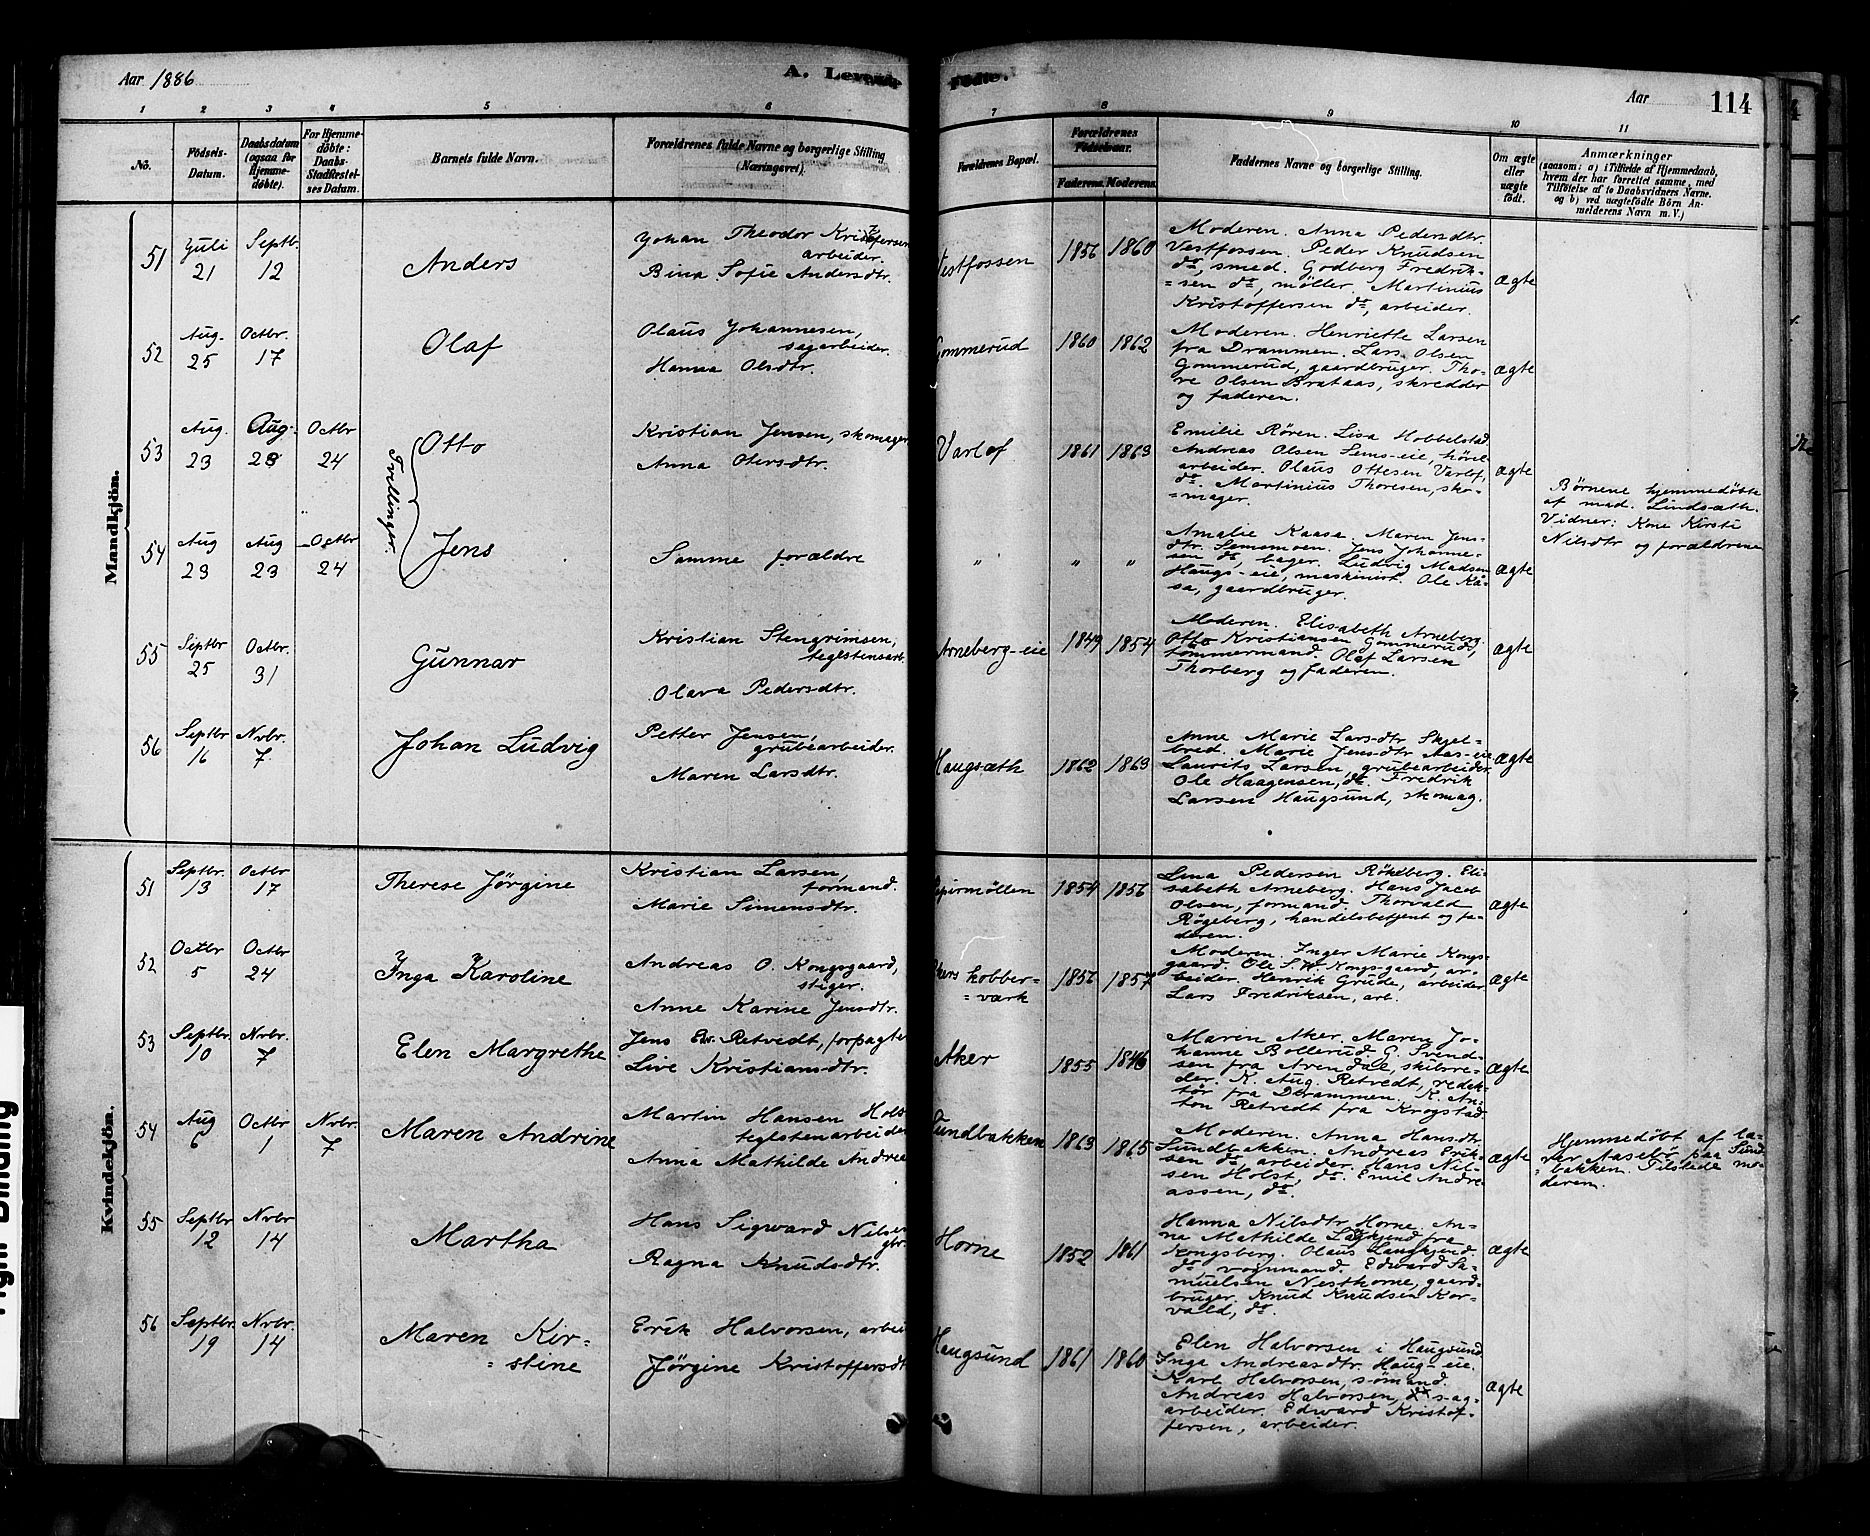 Aar 1886
A. Levende
Födte.
Aar
114
1 2 3 4 5 6 7 8 9 10 11
No.
Födsels-
Datum.
Daabsdatum
(ogsaa for
Hjemme-
döbte).
For Hjemme-
döbte:
Daabs-
Stadfæstel-
ses Datum.
Barnets fulde Navn.
Forældrenes fulde Navne og borgerlige Stilling
(Næringsvei).
Forældrenes Bopæl.
Forældrenes
Födselsaar.
Faderens. Moderens.
Faddernes Navne og borgerlige Stilling.
Om ægte
eller
uægte
født.
Anmærkninger
(saasom: a) i Tilfælde af Hjemmedaab,
hvem der har forrettet samme, med
Tilföielse af to Daabsvidners Navne.
og b) ved uægtefödte Börn An-
melderens Navn m. V.)
Mandkjön.
51
Juli
21
Septb.
12
Anders
Johan Theodor Kristofersen
arbeider.
Bina Sofie Andersdtr.
Vestfossen
1856
1860
Moderen. Anna Pedersdtr.
Vestfossen. Peder Knudsen
do, smed. Godberg Fredrik-
=sen do, møller. Martinius
Kristoffersen do, arbeider.
Ægte
52
Aug.
25
Octbr.
17
Olaf
Olaus Johannesen,
sagarbeider.
Hanna Olsdtr.
Gommerud
1860
1862
Moderen. Henriette Larsen
fra Drammen. Lars Olsen
Gommerud, gaardbruger. Tho-
re Olsen Brataas, skredder
og faderen.
Ægte
53
Aug.
23
Aug.
23
Octbr
24
Otto
Trillinger.
Kristian Jensen, skomager
Anna Otersdtr.
Varlof
1861
1863
Emilie Røren. Lisa Hobbelstad.
Andreas Olsen Sems-eie,
arbeider. Olaus Ottesen Varlof,
do. Martinius Thoresen, sko-
=mager.
Ægte
Børnene hjemmedøbte
af mad. Lindsæth.
Vidner: Kone Kirsti
Nilsdtr og forældrene
54
Aug
23
Aug
23
Octbr
24
Jens
Samme forældre
"
"
"
Amalie Kaasa. Maren Jens-
dtr. Semsmoen. Jens Johanne-
sen do, bager. Ludvig Madsen
Haugs-eie, maskinist. Ole Kå-
sa, gaardbruger.
Ægte
55
Septbr
25
Octbr.
31
Gunnar
Kristian Stengrimsen,
teglstensarb.
Olava Pedersdtr.
Arneberg-eie
1849
1854
Moderen. Elisabeth Arneberg.
Otto Kristiansen Gommerud,
tommermand. Olaf Larsen
Thorberg og faderen.
Ægte
56
Septbr
16
Nvbr.
7
Johan Ludvig
Petter Jensen,
grubearbeider.
Maren Larsdtr.
Haugsæth
1862
1863
Anne Marie Larsdtr Skjel-
bred. Marie Jensdtr Aas-eie
Laurits Larsen, grubearbeider.
Ole Haagensen, do. Fredrik
Larsen Haugsund, skomag.
Ægte
Kvindekjön.
51
Septbr.
13
Octbr
17
Therese Jörgine
Kristian Larsen,
formand.
Marie Simensdtr.
Papirmøllen
1854
1856
Lina Pedersen Rökeberg. Eli-
sabeth Arneberg. Hans Jacob
Olsen, formand. Thorvald
Røgeberg, handelsbetjent og fa-
deren.
Ægte
52
Octbr
5
Octbr
24
Inga Karoline
Andreas O. Kongsgaard,
stiger.
Anne Karine Jensdtr.
Ekers kobber-
=værk
1856
1857
Moderen. Inger Marie Kongs-
gaard. Ole S. W. Kongs-gaard, ar-
beider. Henrik Grude, arbeider
Lars Fredriksen, arb.
Ægte
53
Septbr.
10
Nvbr.
7
Elen Margrethe
Jens Retvedt, forpagter
Live Kristiansdtr.
Aker
1855
1846
Maren Aker. Maren Jo-
hanne Bollerud. G. Svend-
sen fra Arendal, skibsre-
der. K. Aug. Retvedt, redek-
tør fra Drammen. K. An-
ton Retvedt fra Krogstad
Ægte
54
Aug
6
Octbr
1
Nvbr.
7
Maren Andrine
Martin Hansen Holst
teglstenarbeider
Anna Mathilde Andrea
Sundbakken
1863
1865
Moderen. Anna Hansdtr.
Sundbakken. Andreas Erik-
sen do arbeider. Hans Nil-
sen Holst, do. Emil Andre
assen, do.
Ægte
Hjemmedøbt af læ-
rer Aasebø paa Sund
=bakken. Tilstede mo-
deren.
55
Septbr
12
Nvbr
14
Martha
Hans Sigward Nilsen
gbr.
Ragna Knudsdtr.
Horne
1852
1861
Hanna Nilsdtr Horne. An-
ne Mathilde Langkjend fra
Kongsberg. Olaus Langkjend.
do, vognmand. Edward Sa-
muelsen Nesthorne, gaard-
bruger. Knud Knudsen Kor-
vald, do.
Ægte
56
Septbr.
19
Nvbr.
14
Maren Kir-
=stine
Erik Halvorsen, arbei
Jörgine Kristoffersdt
Haugsund
1861
1860
Elen Halvorsen i Haugsund
Inga Andreasdtr. Haug-eie.
Karl Halvorsen, sømand.
Andreas Halvorsen, sag-
arbeider. Edward Kristof-
fersen, arbeider.
Ægte